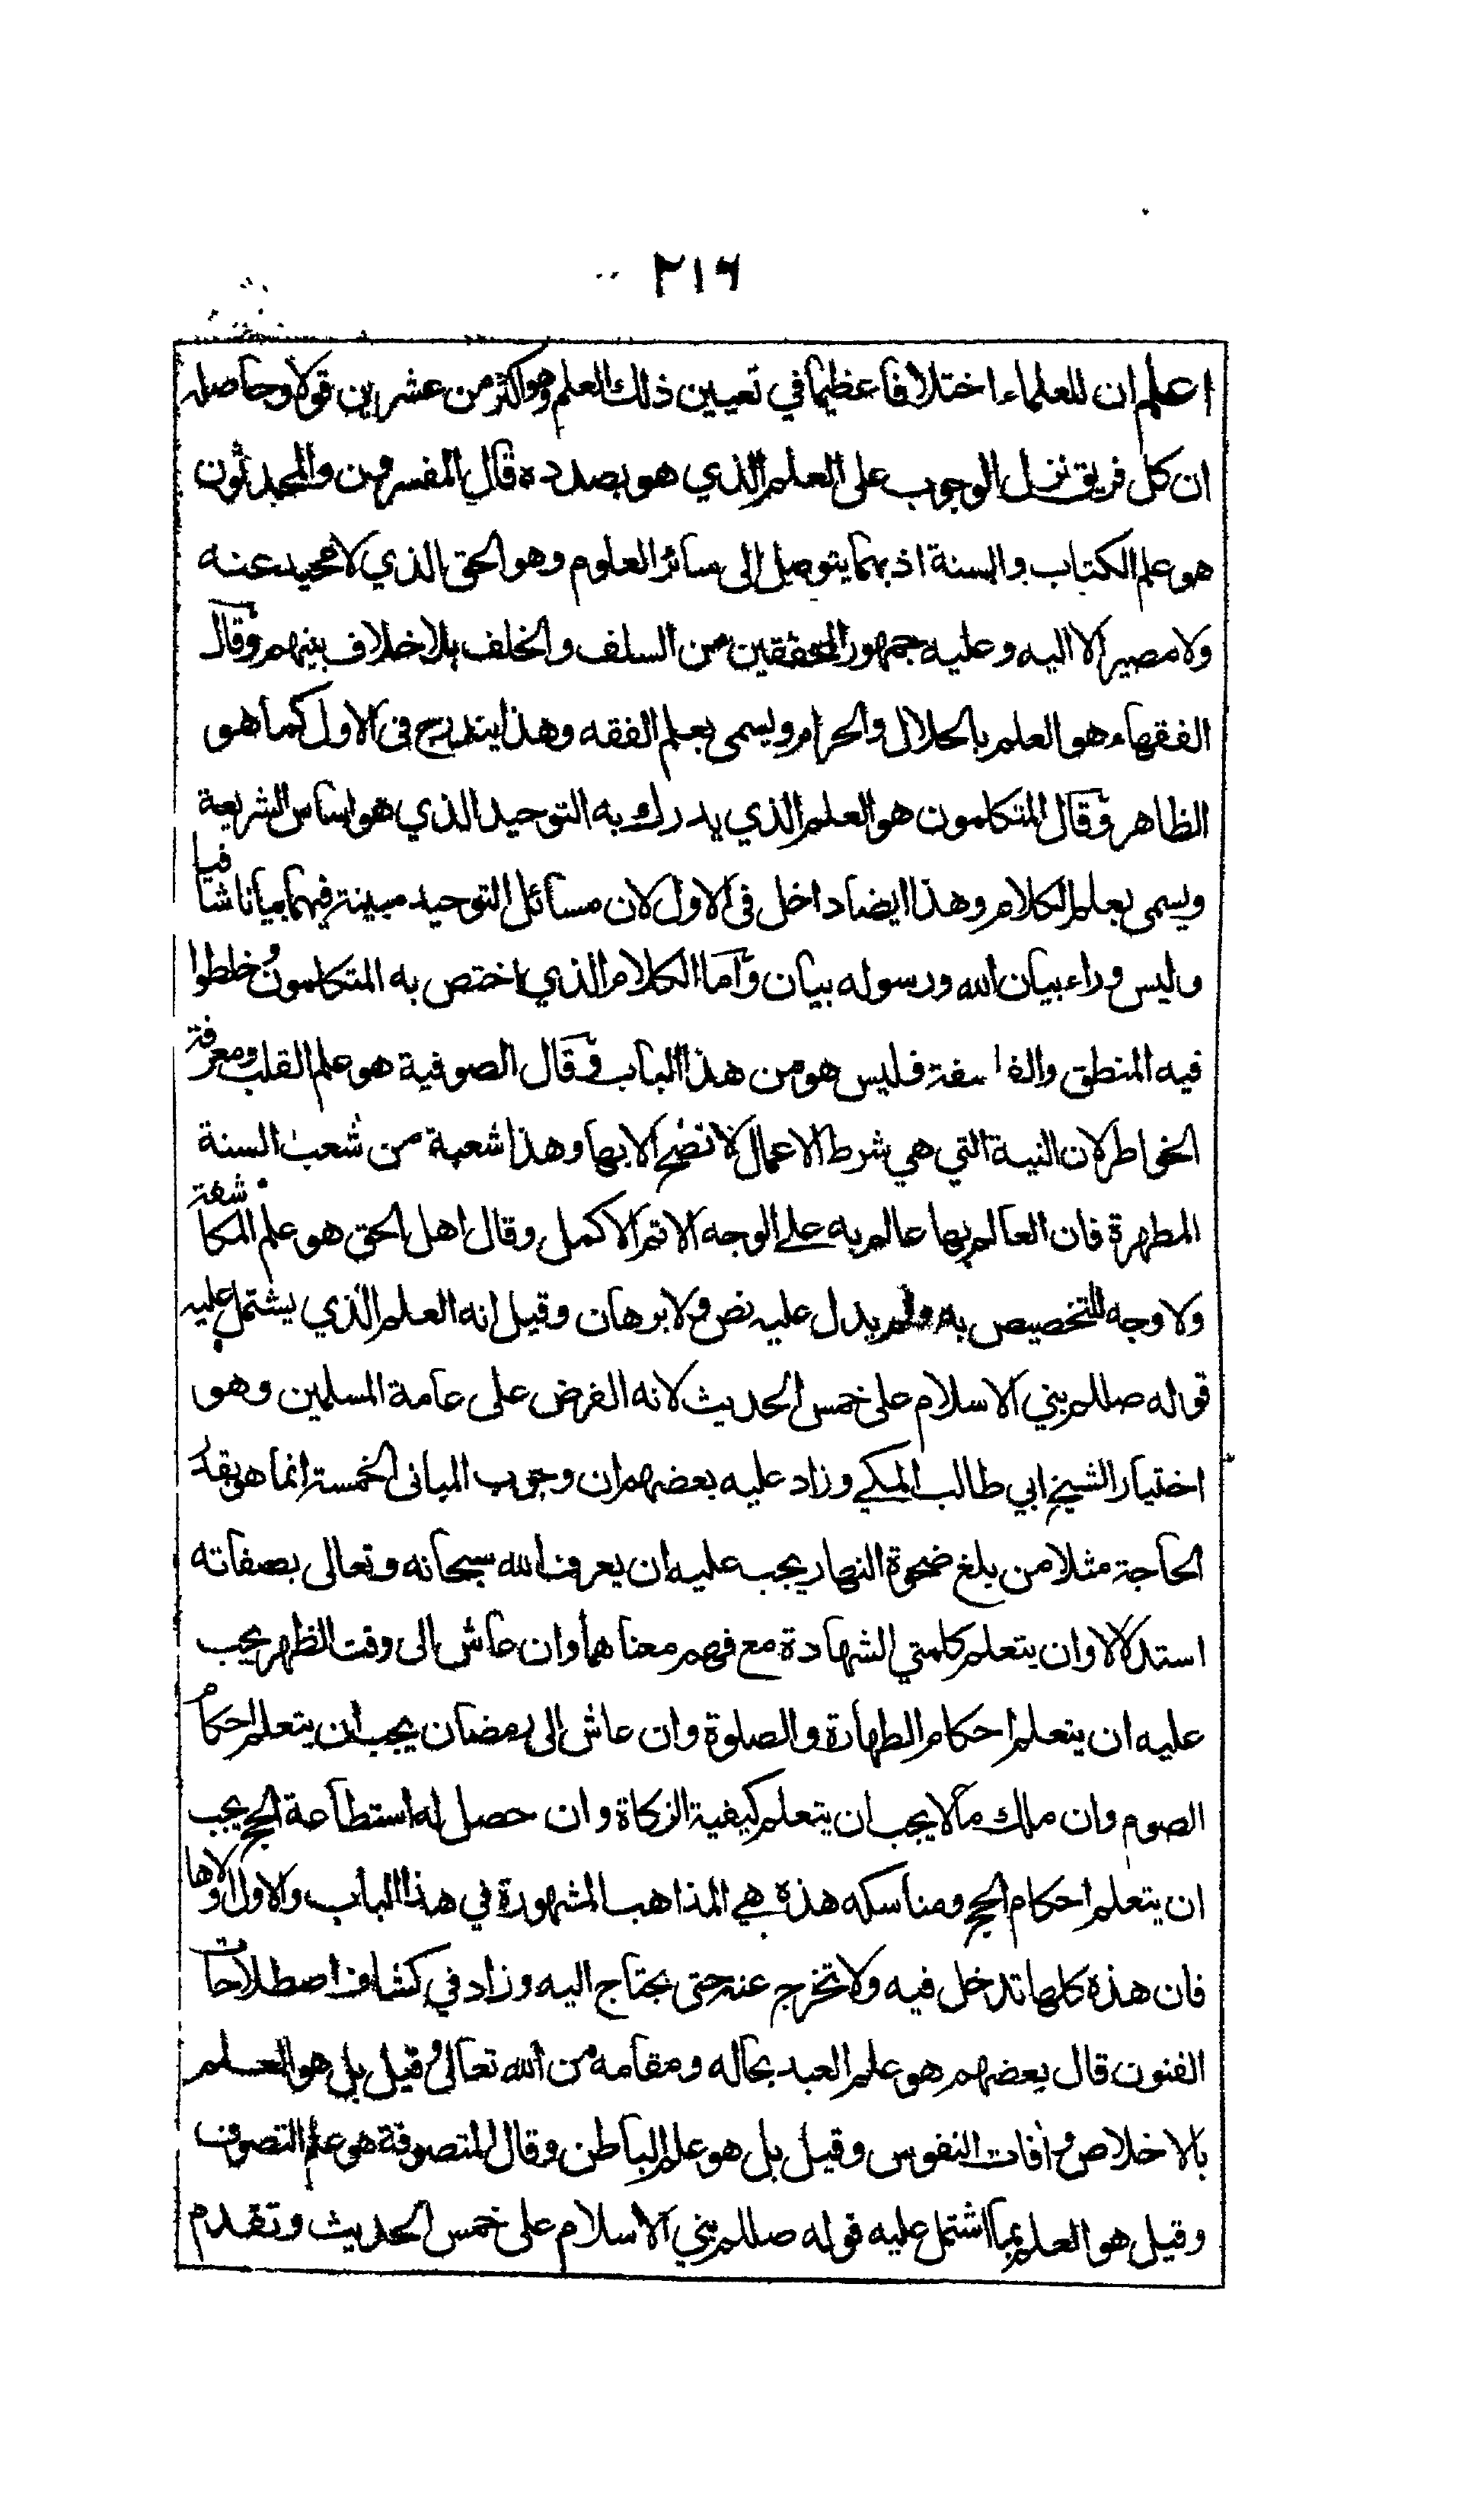 ٢١٦
اعلم ان للعلماء اختلافا عظيما في تعيين ذلك العلم وهو اكثر من عشرين قولا وحاصله
ان كل فريق نزل الوجوب على العلم الذي هو بصدده قال المفسرون والمحدثون
هو علم الكتاب والسنة اذ بهما يتوصل الى سائر العلوم وهو الحق الذي لا محيد عنه
ولا مصير الا اليه وعليه جمهور المحققين من السلف والخلف بلا خلاف بينهم وقال
الفقهاء هو العلم بالحلال والحرام ويسمى بعلم الفقه وهذا يندرج في الاول كما هو
الظاهر وقال المتكلمون هو العلم الذي يدرك به التوحيد الذي هو اساس الشريعة
ويسمى بعلم الكلام وهذا ايضا داخل في الاول لان مسائل التوحيد مبينة فيهما بيانا شافيا
وليس وراء بيان الله ورسوله بيان واما الكلام الذي اختص به المتكلمون وخلطوا
فيه المنطق والفلسفة فليس هو من هذا الباب وقال الصوفية هو علم القلب ومعرفة
الخواطر لان النية التي هي شرط الاعمال لا تصح الا بها وهذا شعبة من شعب السنة
المطهرة فان العالم بها عالم به على الوجه الاتم الاكمل وقال اهل الحق هو علم المكاشفة
ولا وجه للتخصيص به ولم يدل عليه نص ولا برهان وقيل انه العلم الذي يشتمل عليه
قوله صللم بني الاسلام على خمس الحديث لانه الفرض على عامة المسلمين وهو
اختيار الشيخ ابي طالب المكي وزاد عليه بعضهم ان وجوب المباني الخمسة انما هو بقدر
الحاجة مثلا من بلغ ضحوة النهار يجب عليه ان يعرف الله سبحانه وتعالى بصفاته
استدلالا وان يتعلم كلمتي الشهادة مع فهم معناهما وان عاش الى وقت الظهر يجب
عليه ان يتعلم احكام الطهارة والصلوة وان عاش الى رمضان يجب ان يتعلم احكام
الصوم وان ملك مالا يجب ان يتعلم كيفية الزكاة وان حصل له استطاعة الحج يجب
ان يتعلم احكام الحج ومناسكه هذه هي المذاهب المشهورة في هذا الباب والاول اولاها
فان هذه كلها تدخل فيه ولا تخرج عنه حتى يحتاج اليه وزاد في كشاف اصطلاحات
الفنون قال بعضهم هو علم العبد بحاله ومقامه من الله تعالى وقيل بل هو العلم
بالاخلاص وآفات النفوس وقيل بل هو علم الباطن وقال المتصوفة هو علم التصوف
وقيل هو العلم بما اشتمل عليه قوله صللم بني الاسلام على خمس الحديث وتقدم